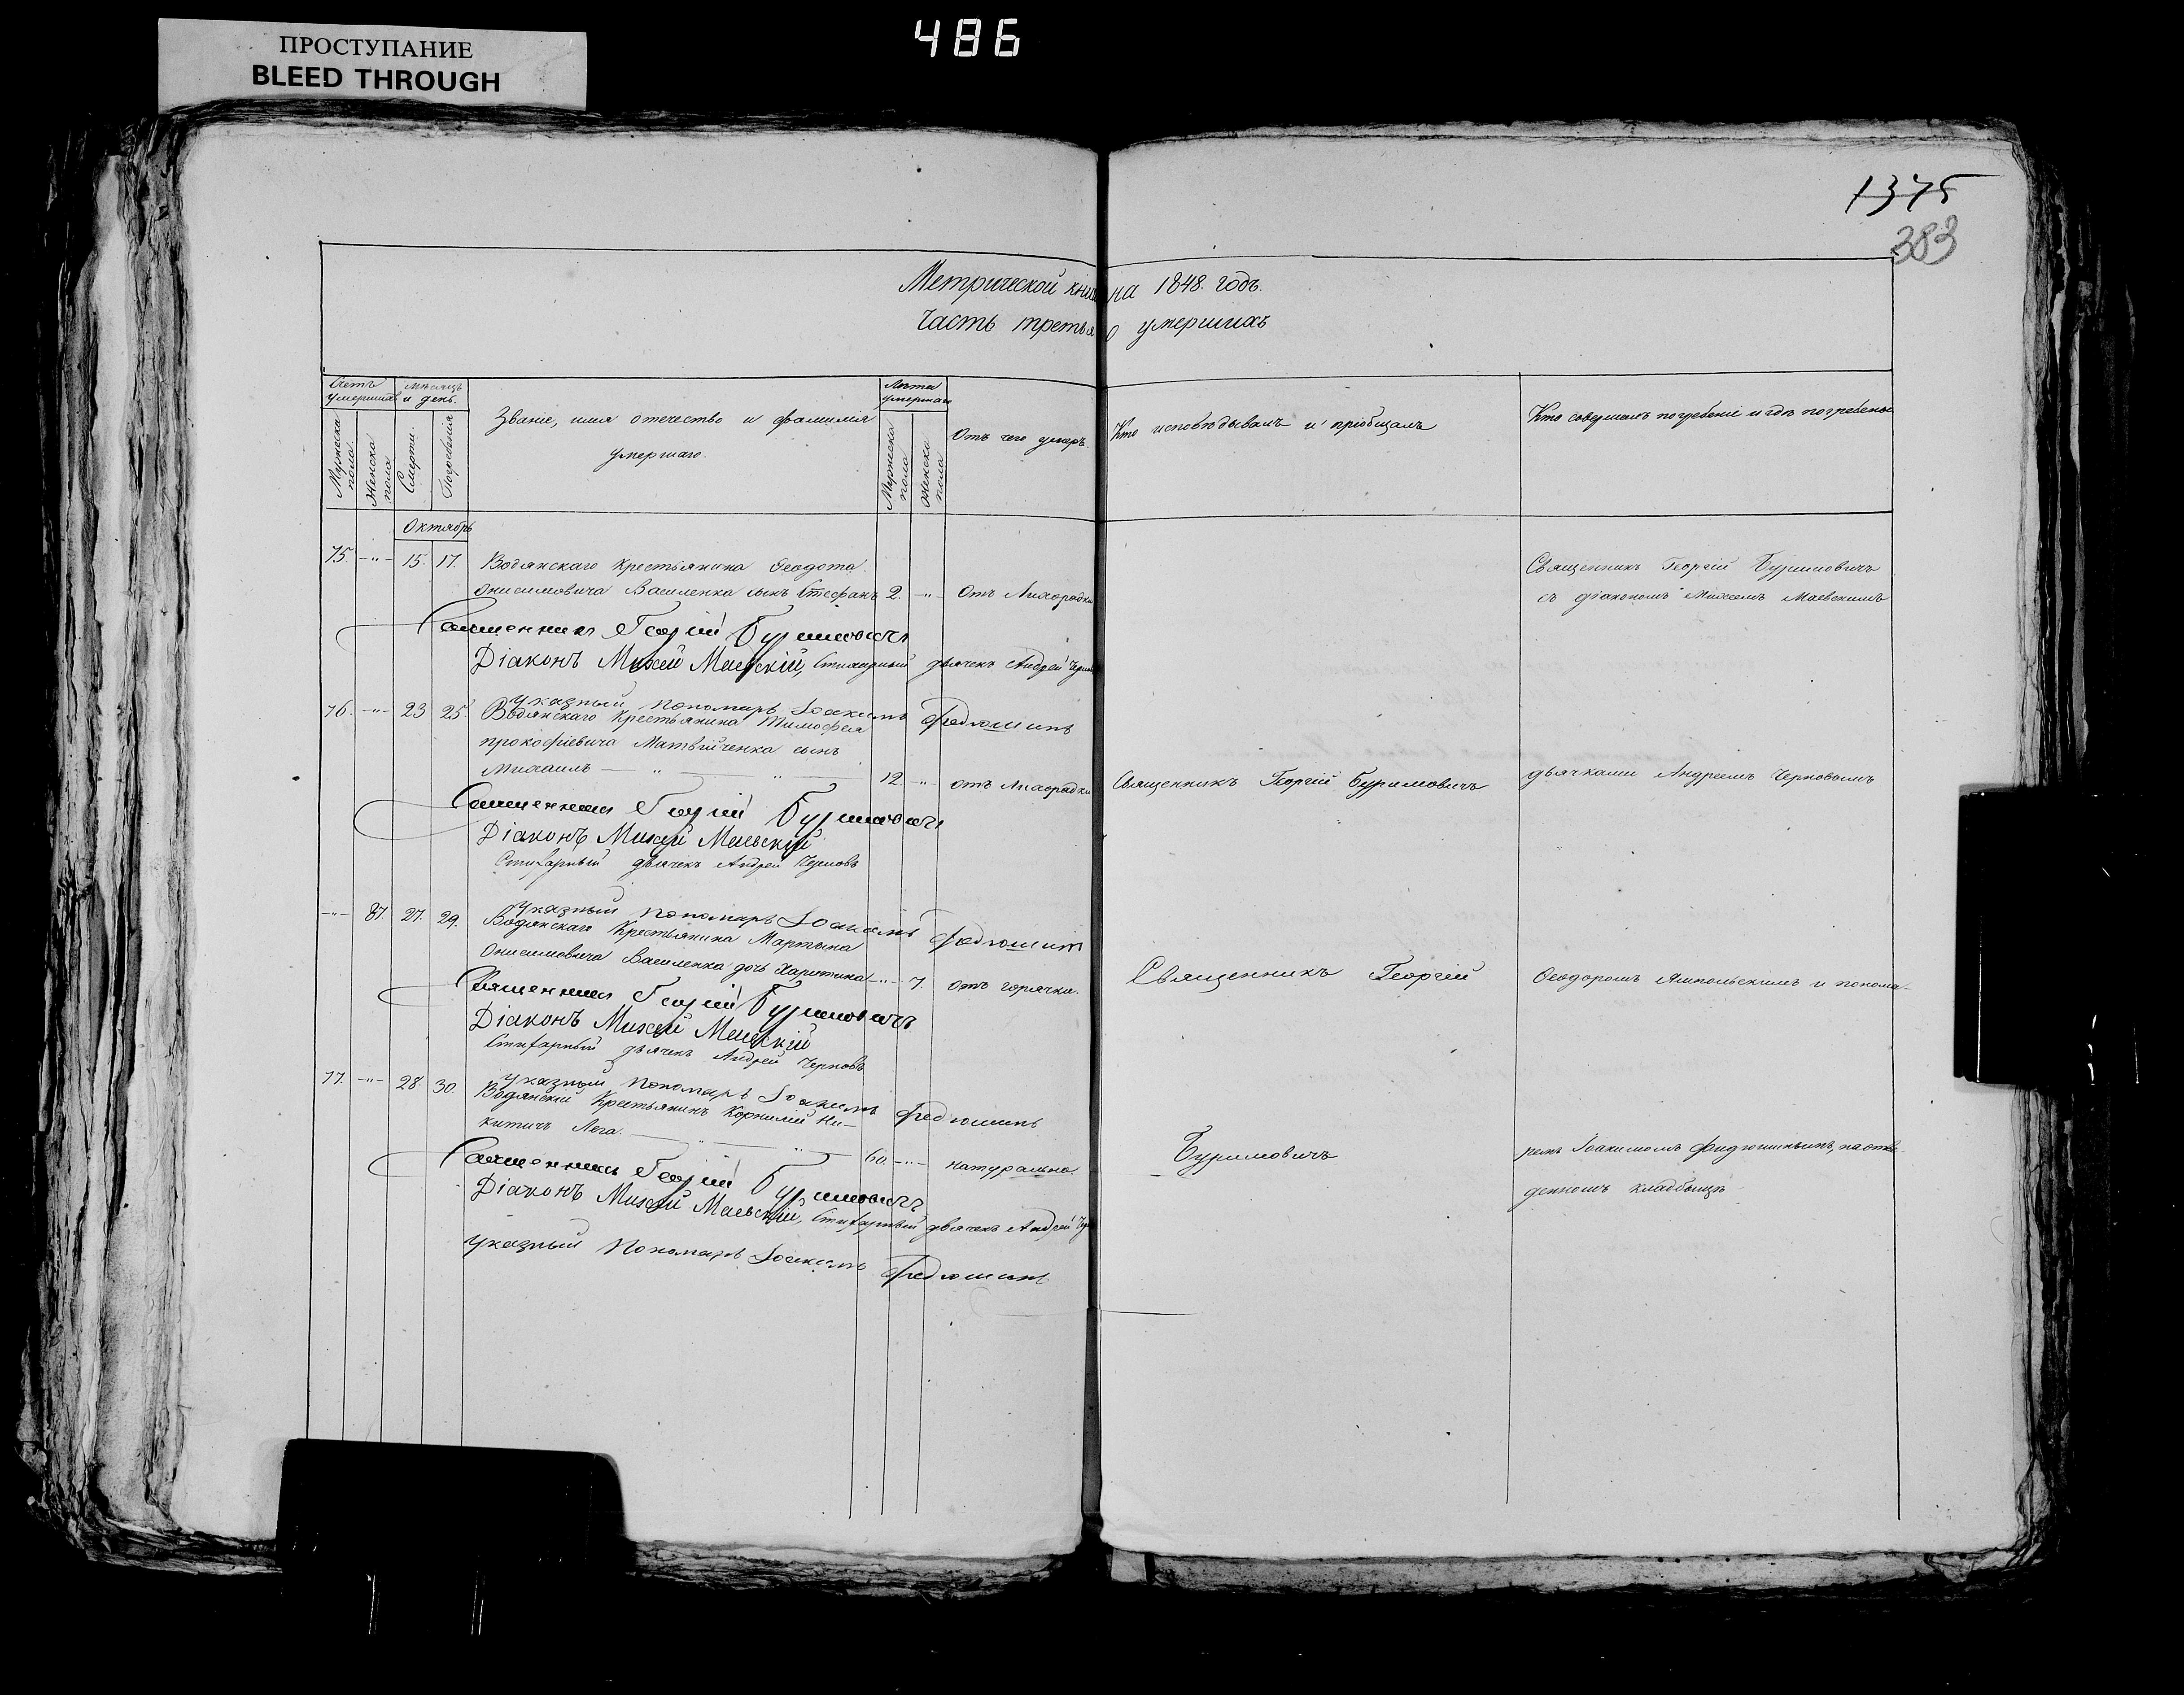 ПРОСТУПАНИЕ
BLEED THROUGH
486
1375
383
Метрической книги на 1848. годъ.
Часть третья о умершихъ
Счетъ умершихъ
Мѣсяцъ и день.
Мужеска пола.
Женска пола
Смерти.
Погребенія
Званіе, имя отечество и фамилія
умершаго.
Лѣта умершаго
Мужеска пола
Женска пола
Отъ чего умеръ.
Кто исповѣдывалъ и пріобщалъ
Кто совершалъ погребеніе и гдѣ погребены
Октябрь
75. -"- 15. 17. Водянскаго Крестьянина Феодота
Онисимовича Василенка сынъ Стефанъ 2. -"- Отъ Лихорадки
Священникъ Георгій Буримовичъ
съ діакономъ Михеемъ Маевскимъ
Священникъ Георгій Буримовичъ
Діаконъ Михей Маевскій, Стихарный дьячекъ Андрей
Указный Пономарь Іоакимъ
76. -"- 23 25. Водянскаго Крестьянина Тимофея
прокофіевича Матвѣйченка сынъ
Михаилъ — " — " — 12. -"- отъ Лихорадки
Священникъ Георгій Буримовичъ
дьячками Андреемъ Черновымъ
Священникъ Георгій Буримовичъ
Діаконъ Михей Маевскій
Стихарный дьячекъ Андрей Черновъ
Указный Пономарь Іоакимъ
-"- 87 27. 29. Водянскаго Крестьянина Мартина
Онисимовича Василенка дочь Харитина -"- 7. отъ горячки.
Священникъ Георгій
Феодоромъ Ямпольскимъ и понома-
Священникъ Георгій Буримовичъ
Діаконъ Михей Маевскій
Стихарный дьячекъ Андрей Черновъ
Указный Пономарь Іоакимъ
77. -"- 28. 30. Водянскій Крестьянинъ Корнилій Ни-
китичъ Лега. — " — " — 60. -"- натурально.
Буримовичъ
ремъ Іоакимомъ
денномъ кладбищѣ
Священникъ Георгій Буримовичъ
Діаконъ Михей Маевскій, Стихарный дьячекъ Андрей
Указный Пономарь Іоакимъ